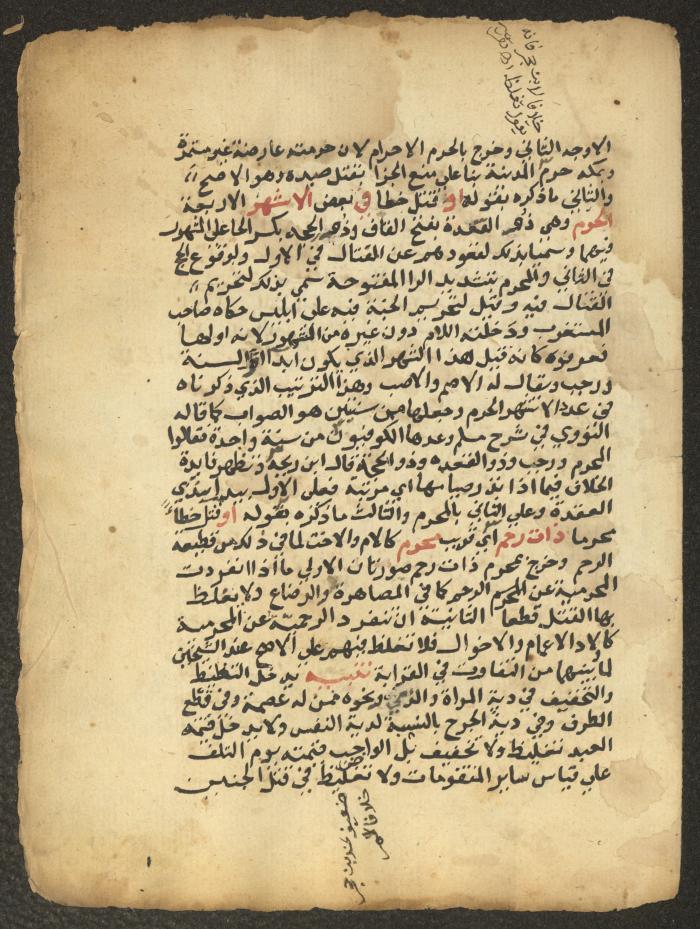 خلافا لابن حجر فانه
يقول تغلظ اه
الاوجه الثاني وخرج بالحرم الاحرام لان حرمته عارضة غير مستمرة
وبمكة حرم المدينة بناء علي منع الجزا بقتل صيده وهو الاصح
والثاني ما ذكره بقوله او قتل خطا في بعض الاشهر الاربعة
الحرم وهي ذو القعدة بفتح القاف وذو الحجه بكسر الحا علي المشهور
فيهما وسميا بذلك لقعودهم عن القتال في الاول ولوقوع الحج
في الثاني والمحرم بتشديد الرا المفتوحة سمي بذلك لتحريم
القتال فيه وقيل لتحريم الجنة فيه علي ابليس حكاه صاحب
المستعرب ودخلته اللام دون غيره من الشهور لانه اولها
فعرفوه كانه قيل هذا الشهر الذي يكون ابدا اول السنة
ورجب ويقال له الاصم والاصب وهذا الترتيب الذي ذكرناه
في عدة الاشهر الحرم وجعلها من سنتين هو الصواب كما قاله
النووي في شرح مسلم وعدها الكوفيون من سنة واحدة فقالوا
المحرم ورجب وذو القعده وذو الحجة قال ابن دحية وتظهر فايدة
الخلاف فيما اذا نذر صيامها اي مرتبة فعلي الاول يبتدي
بالقعدة وعلي الثاني بالمحرم والثالث ما ذكره بقوله او قتل خطأ
محرما ذات رحم اي قريب محرم كالام والاخت لما في ذلك من قطيعة
الرحم وخرج بمحرم ذات رحم صورتان الاولي ما اذا انفردت
المحرمية عن الرحم كما في المصاهرة والرضاع ولا يغلظ
بها القتل قطعا الثانية ان تنفرد الرحمية عن المحرمية
كاولاد الاعمام والاخوال فلا تغليظ فيهم علي الاصح عند الشيخين
لما بينهما من التفاوت في القرابة تنبيه يدخل التغليظ
والتخفيف في دية المراة والذمي ونحوه ممن له عصمة وفي قطع
الطرف وفي دية الجرح بالنسبة لدية النفس ولا يدخل قيمة
العبد تغليظ ولا تخفيف بل الواجب قيمته يوم التلف
علي قياس ساير المتقومات ولا تغليظ في قتل الجنين
ضعيف
خلافا